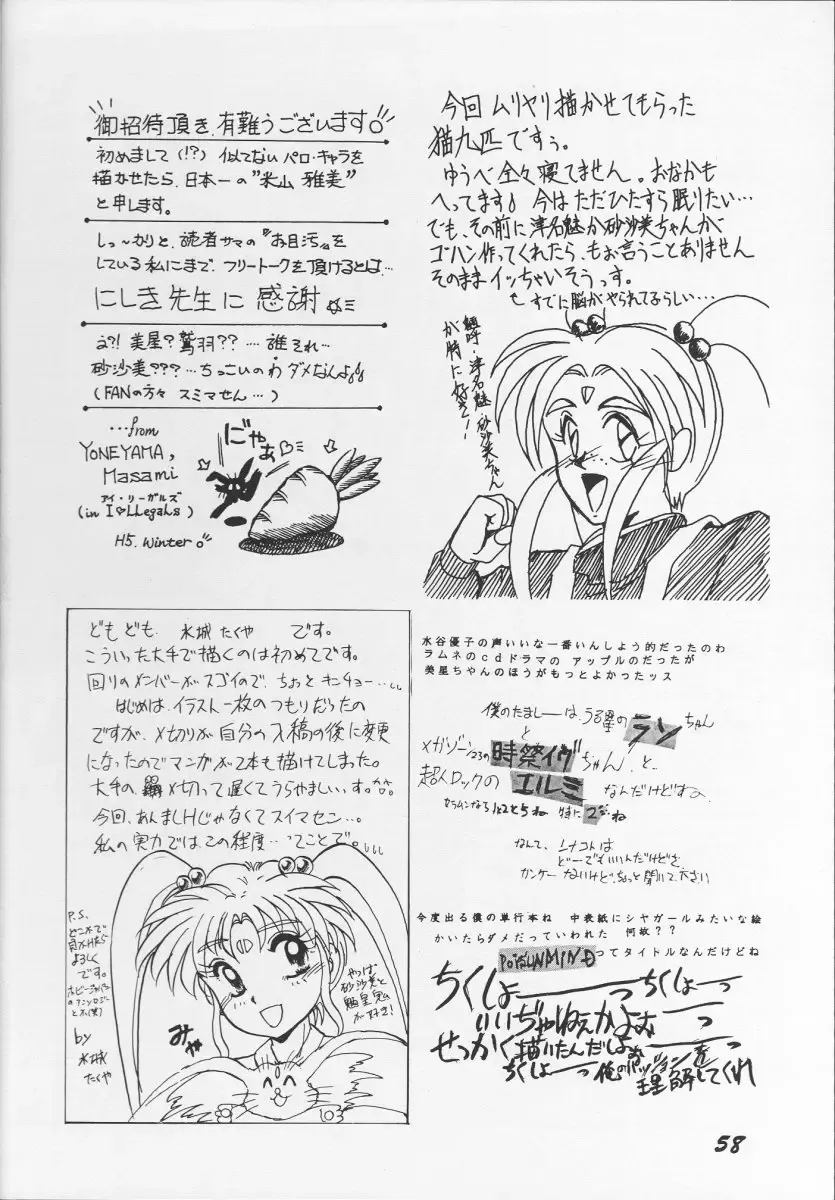 御招待頂き、有難うございます。
初めまして(!?) 似てない パロ・キャラを
描かせたら、日本一の"米山 雅美"
と申します。
しっ〜かりと、読者サマの『お目汚』を
している私にまで、フリートークを頂けるとは…
にしき先生に 感謝
え?! 美星? 鷲羽?? …. 誰それ…
砂沙美???…ちっこいのわ ダメなんよ
(FANの方々 スミマせん…)
…from
YONEYAMA,
Masami
アイ・リーガルズ
(in I♡LLegaLs)
H5. winter。
にゃあ
今回 ムリヤリ描かせてもらった
猫九匹ですぅ。
ゆうべ全々寝てません。おなかも
へってます 今はただひたすら眠りたい…
でも、その前に津名魅か砂沙美ちゃんが
ゴハン作ってくれたら、もお言うことありません
そのままイッちゃいそうっす。
すでに脳がやられてるらしい…
魎呼・津名魅・砂沙美ちゃん
が特に好き!
どもども、水城 たくや です。
こういった大手で描くのは初めてです。
回りのメンバーがスゴイので、ちょっとキンチョー…
はじめは、イラスト一枚のつもりだったの
ですが、〆切りが自分の入稿の後に変更
になったのでマンガが2本も描けてしまった。
大手の〆切って遅くてうらやましい、す。
今回、あんましHじゃなくてスイマセン…。
私の実力では、この程度…ってことで。
P.S.
よろしく
です。
by
水城
たくや
やっぱ
砂沙美と
みゃ
水谷優子の声いいな一番いんしよう的だったのわ
ラムネのcdドラマの アップルのだったが
美星ちゃんのほうがもっとよかったッス
僕のたましーは、うる星の ラン ちゃん
と
メガゾーン23の 時祭イヴ ちゃん、と
超人ロックの エルミ なんだけどすよ
セラムンなら 1と2と5ね 特に 2ね
なんて、
どーでもいいんだけどさ、
カンケーないけど、ちょっと聞いて下さい
今度出る僕の単行本ね 中表紙にシヤガールみたいな絵
かいたらダメだっていわれた 何故??
POISUNMIND ってタイトルなんだけどね
ちくしょーーっちくしょーっ
いいぢゃねぇかよぉーっ
せっかく描いたんだしよぉ
ちくしょーっ 俺のパッションを
理解してくれ
58